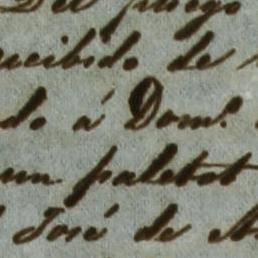 Del pliego
ecibido de
do á Domº
un paletot
José de